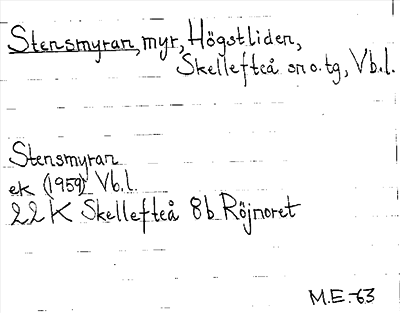 Stensmyran, myr, Högstliden,
Skellefteå sn o. tg, Vb.l.
Stensmyran
ek (1959) Vb.l.
22 K Skellefteå 8b Röjnoret
M.E.-63